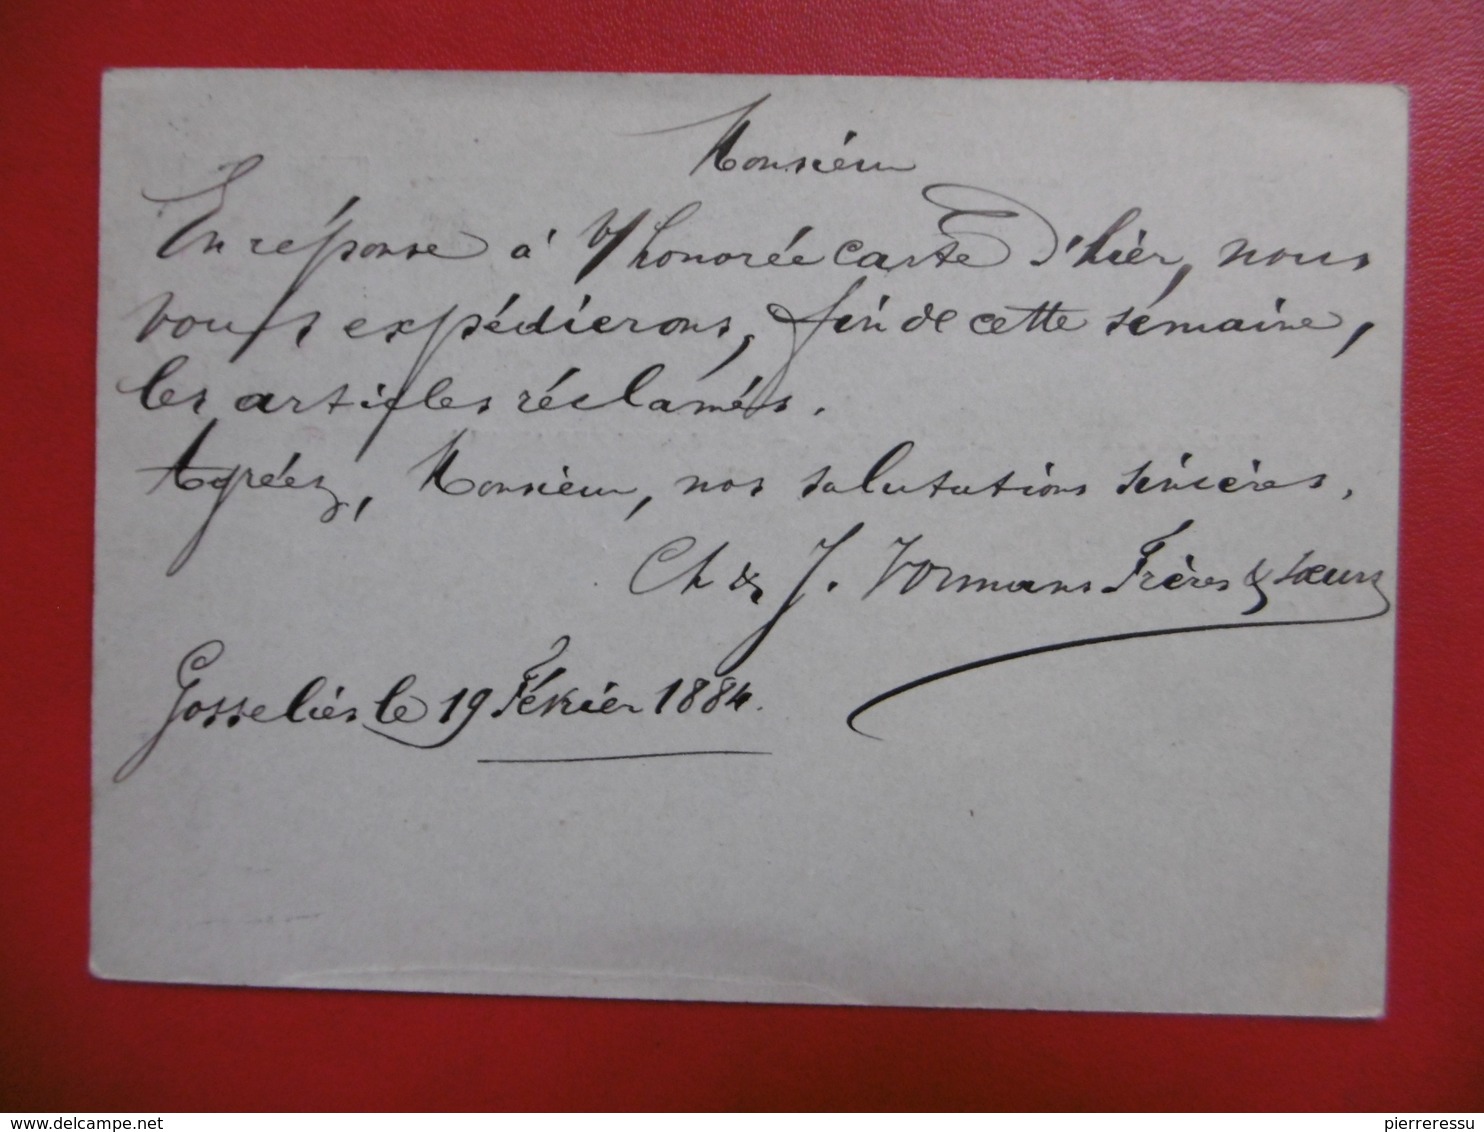 Monsieur
En réponse à v/ honorée carte d'hier, nous
vous expédierons, fin de cette semaine,
les articles réclamés.
Agréez, Monsieur, nos salutations sincères.
Ch & J. Vormans Frères & Soeurs
Gosselies le 19 Février 1884.
delcampe.net
pierreressu